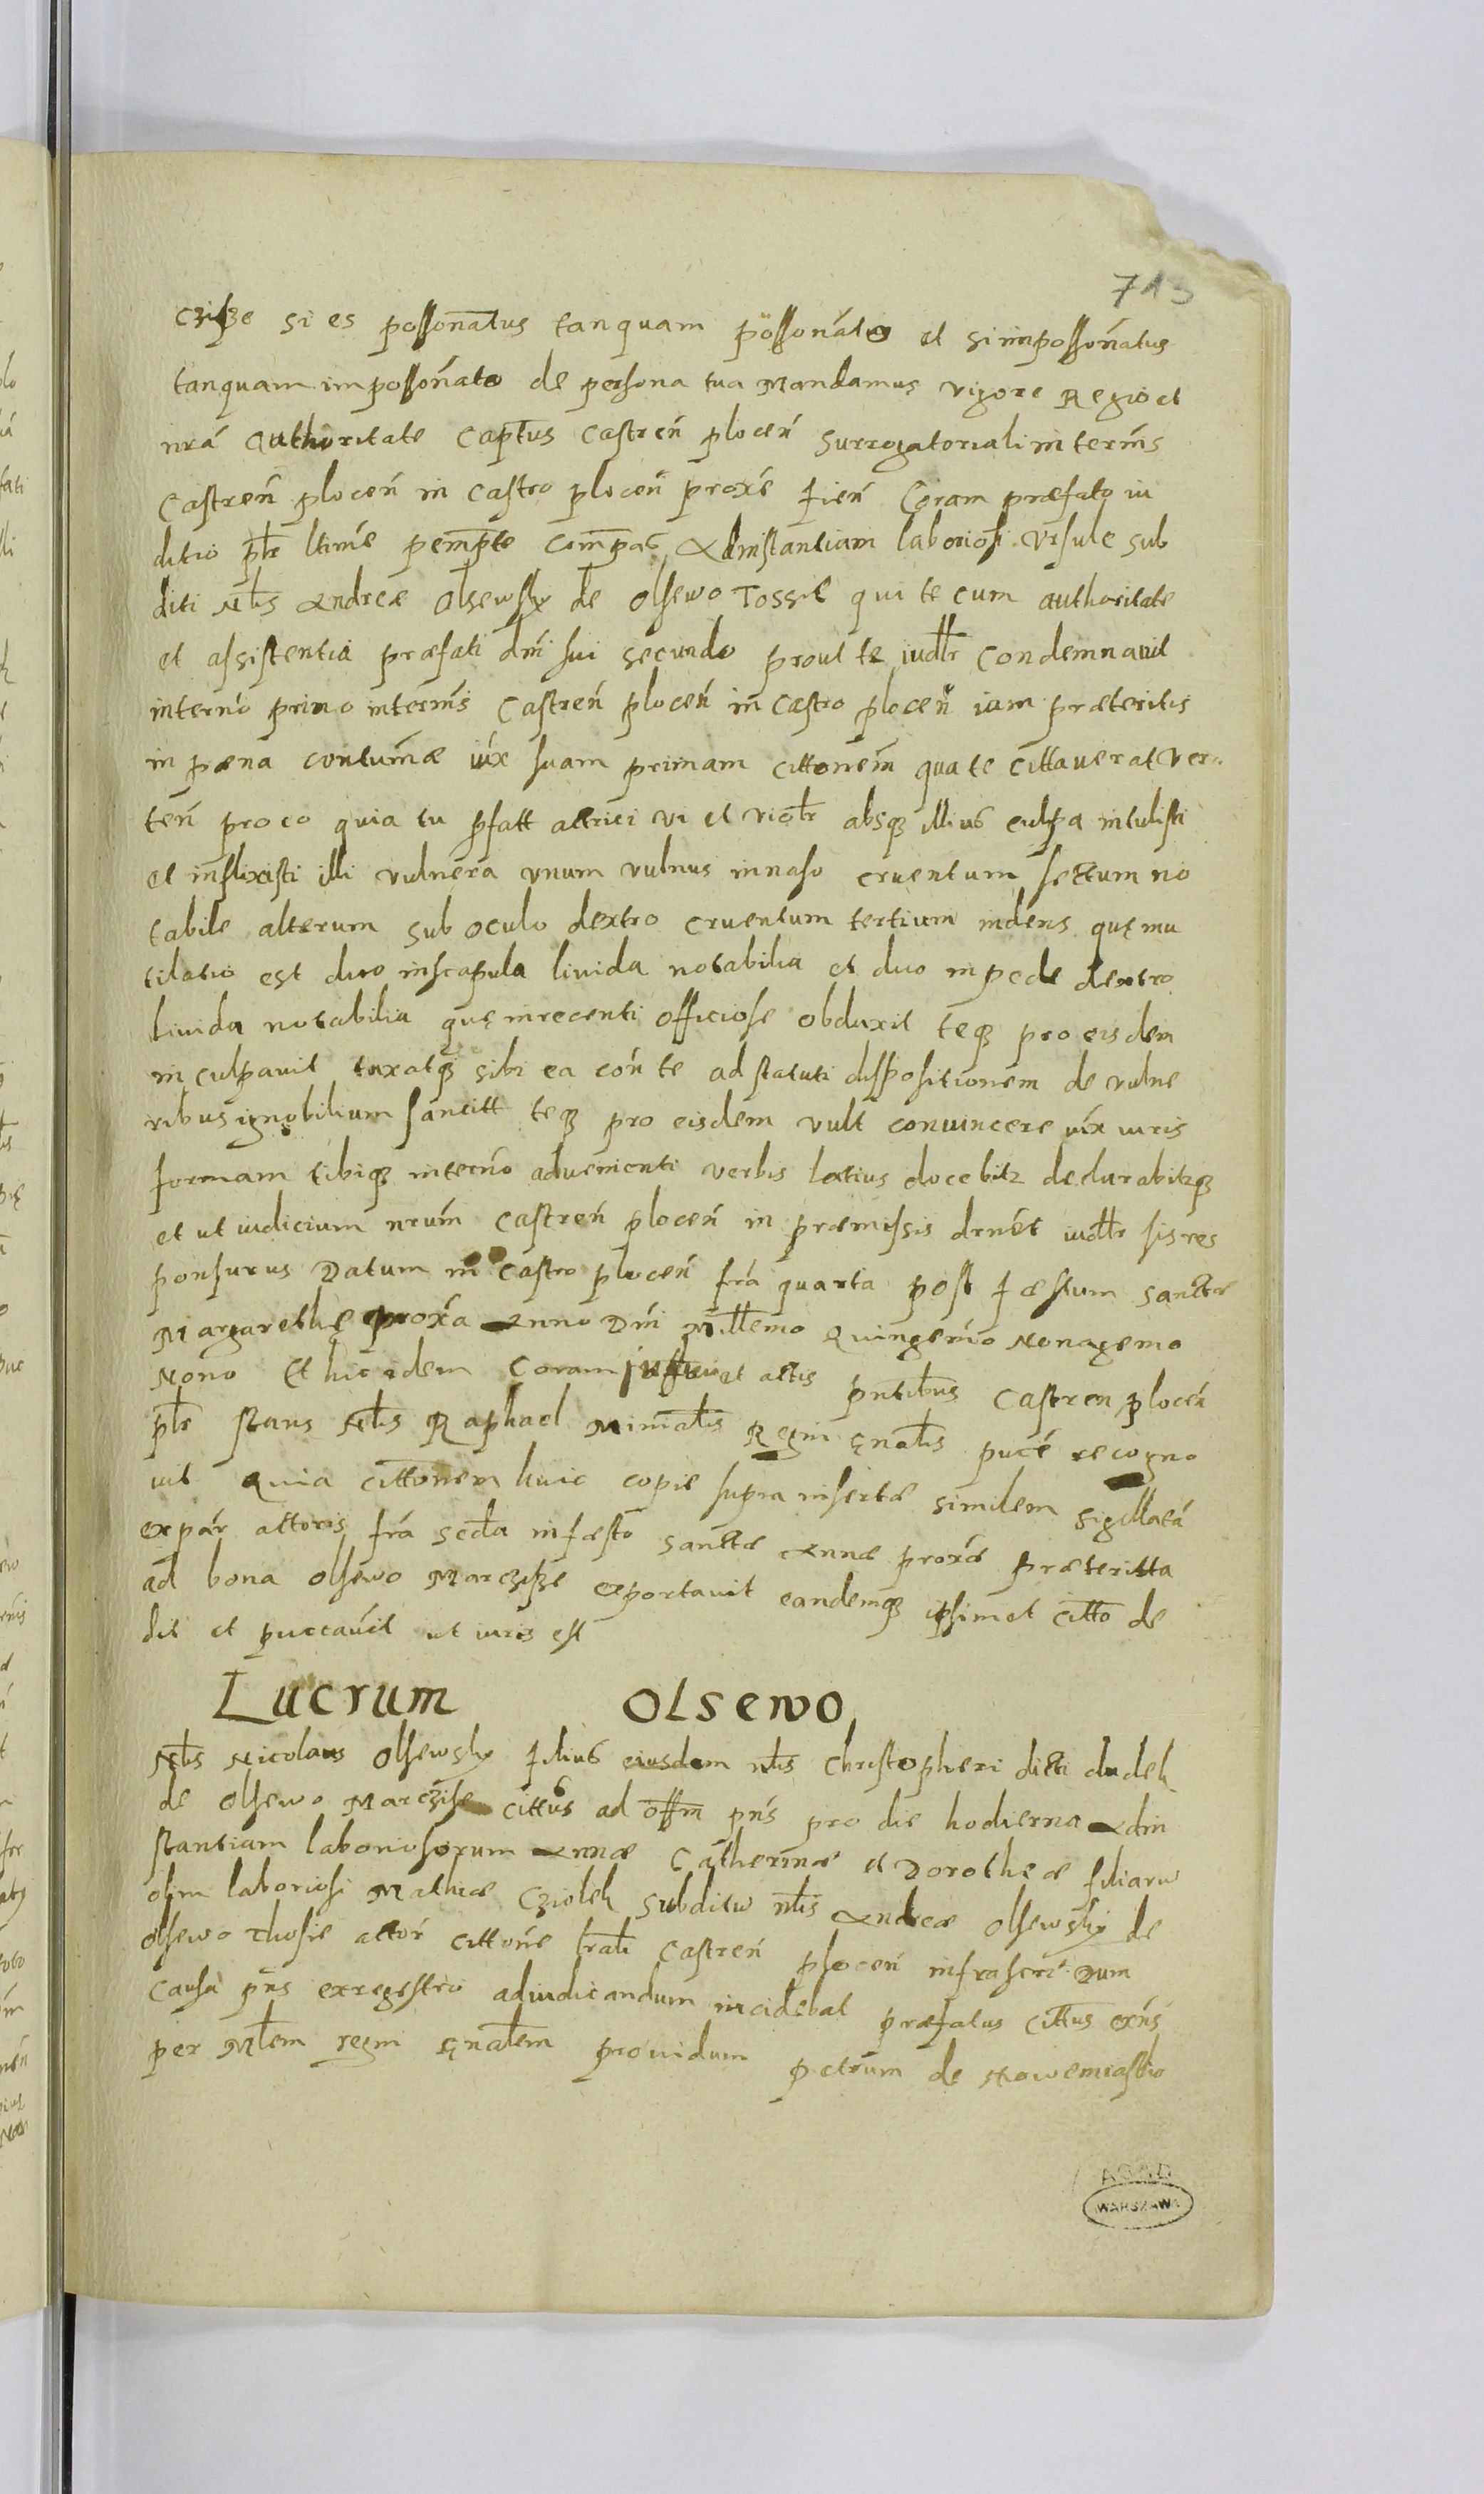 713
cziſze si es poſſonatus tanquam poſſonato et si impoſſonatus
tanquam impoſſonato de persona tua Mandamus vigore Regio et
nra authoritate Captus Castren plocen surrogatoriali in termis
Castren plocen in Castro plocen proxe fien Coram præfato iu
ditio pltr ltime pempte compas Ad instantiam laboriosi Ursule sub
diti Nlis Andreæ Olsewsky de Olsewo Tossie qui te cum authoritate
et assistentia præfati dni sui secundo prout te iudlr condemnauit
in terno primo in termis Castren plocen in Castro plocen iam præteritis
in pæna contumæ iux suam primam cittonem qua te cittauerat ver
ten pro eo quia tu pfatt actrici vi et violr absq illius culpa intulisti
et inflixisti illi vulnera unum vulnus in naso cruentum sectum no
tabile alterum sub oculo dextro cruentum tertium indens quę mu
tilatio est duo in scapula liuida notabilia et duo in pede dextro
liuida notabilia quę in recenti officiose obduxit teq pro eisdem
inculpauit taxatq sibi ea con te ad statuti dispositionem de vulne
ribus ignobilium sancitt teq pro eisdem vult conuincere iux iuris
formam tibiq in terno aduenienti verbis latius docebitr declarabitq
et ut iudicium nrum Castren plocen in præmissis drnet iudlr sis res
ponsurus Datum in Castro plocen fra quarta post fæstum sanctæ
Margarethę proxa Anno Dni Millemo Quingenmo Nonagemo
Nono Et hic idem Coram et actis pntibus Castren plocen
pltr stans Nlis Raphael Minialis Regni gnalis puce recogno
uit Quia cittonem huic copie supra insertæ similem sigillata
ex par actoris fra scda in fæsto sanctæ Annæ proxæ præteritta
ad bona Olsewo Marcziſze exportauit eandemq ipsimet citto de
dit et puccauit ut iuris est
Lucrum Olsewo
Nlis Nicolaus Olsewsky filius eiusdem nlis Christopheri dicti dudek
de Olsewo Marcziſze cittus ad offm pns pro die hodierna Ad in
stantiam laboriosorum Annæ Catherinæ et Dorothęæ filiaru
olim laboriosi Mathiæ Cziolek subditu nlis Andreæ Olsewsky de
Olsewo Thosie actor cittone lrali Castren plocen infrascri Dum
causa pns ex regestro adiudicandum incidebat præfatus cittus exns
per Mlem regni gnalem prouidum petrum de Nowemiastho
AGAD
WARSZAWA